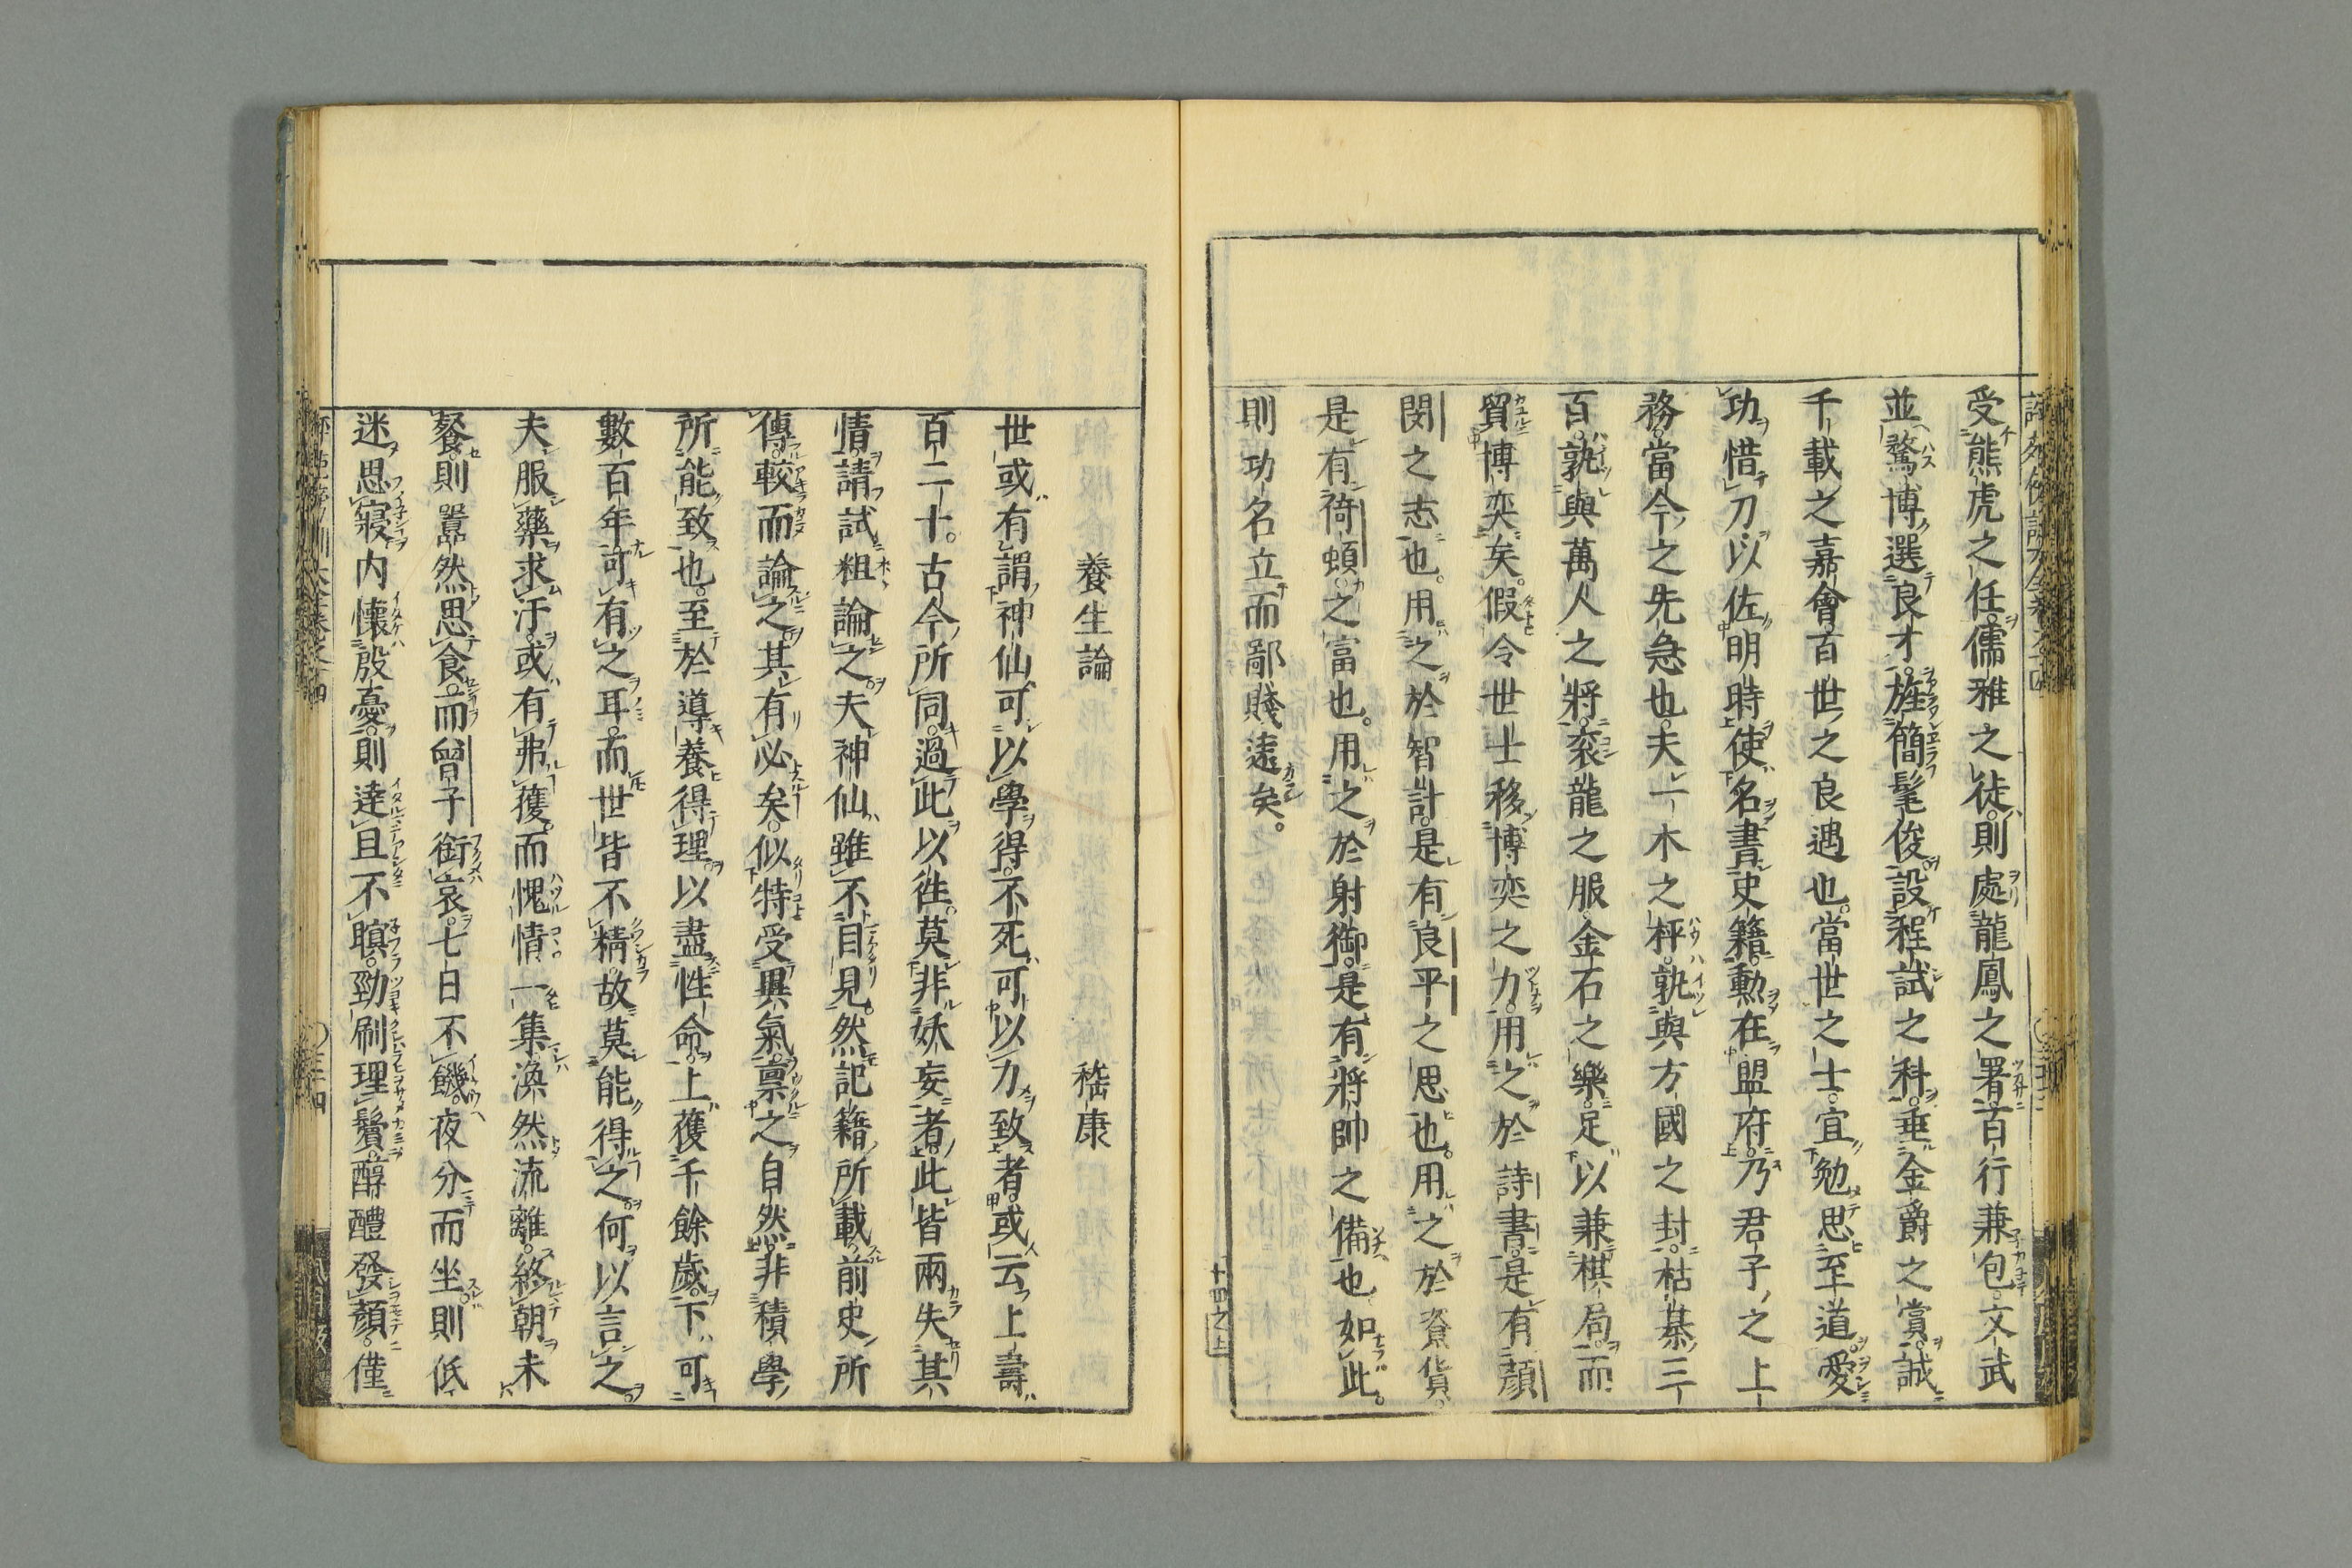 受熊虎之任。儒雅之徒。則處龍鳳之署。百行兼包。文武
並騖。博選良才。旌簡髦俊。設程試之科。垂金爵之賞。誠
千載之嘉會。百世之良遇也。當世之士。宜勉思至道。愛
功惜刀。以佐明時。使名書史籍。勲在盟府。乃君子之上
務。當今之先急也。夫一木之枰。孰與方國之封。枯棊三
百。孰與萬人之將。衮龍之服。金石之樂。足以兼棋局。而
貿博奕矣。假令世士移博奕之力。用之於詩書。是有顔
閔之志也。用之於智計。是有良平之思也。用之於資貨。
是有猗頓之富也。用之於射御。是有將帥之備也。如此。
則功名立而鄙賤遠矣。
十四之上
養生論　嵆康
世或有謂神仙可以學得。不死可以力致者。或云上壽
百二十。古今所同。過此以徃。莫非妖妄者。此皆兩失其
情。請試粗論之。夫神仙雖不目見。然記籍所載。前史所
傳。較而論之。其有必矣。似特受異氣。禀之自然。非積學
所能致也。至於導養得理。以盡性命。上獲千餘歲。下可
數百年。許有之耳。而世皆不精。故莫能得之。何以言之。
夫服藥求汗。或有弗獲。而愧情一集。渙然流離。終朝未
餐。則嚣然思食。而曾子銜哀。七日不饑。夜分而坐。則低
迷思寝。内懐殷憂。則達且不瞑。勁刷理鬢。醇醴發顔。僅